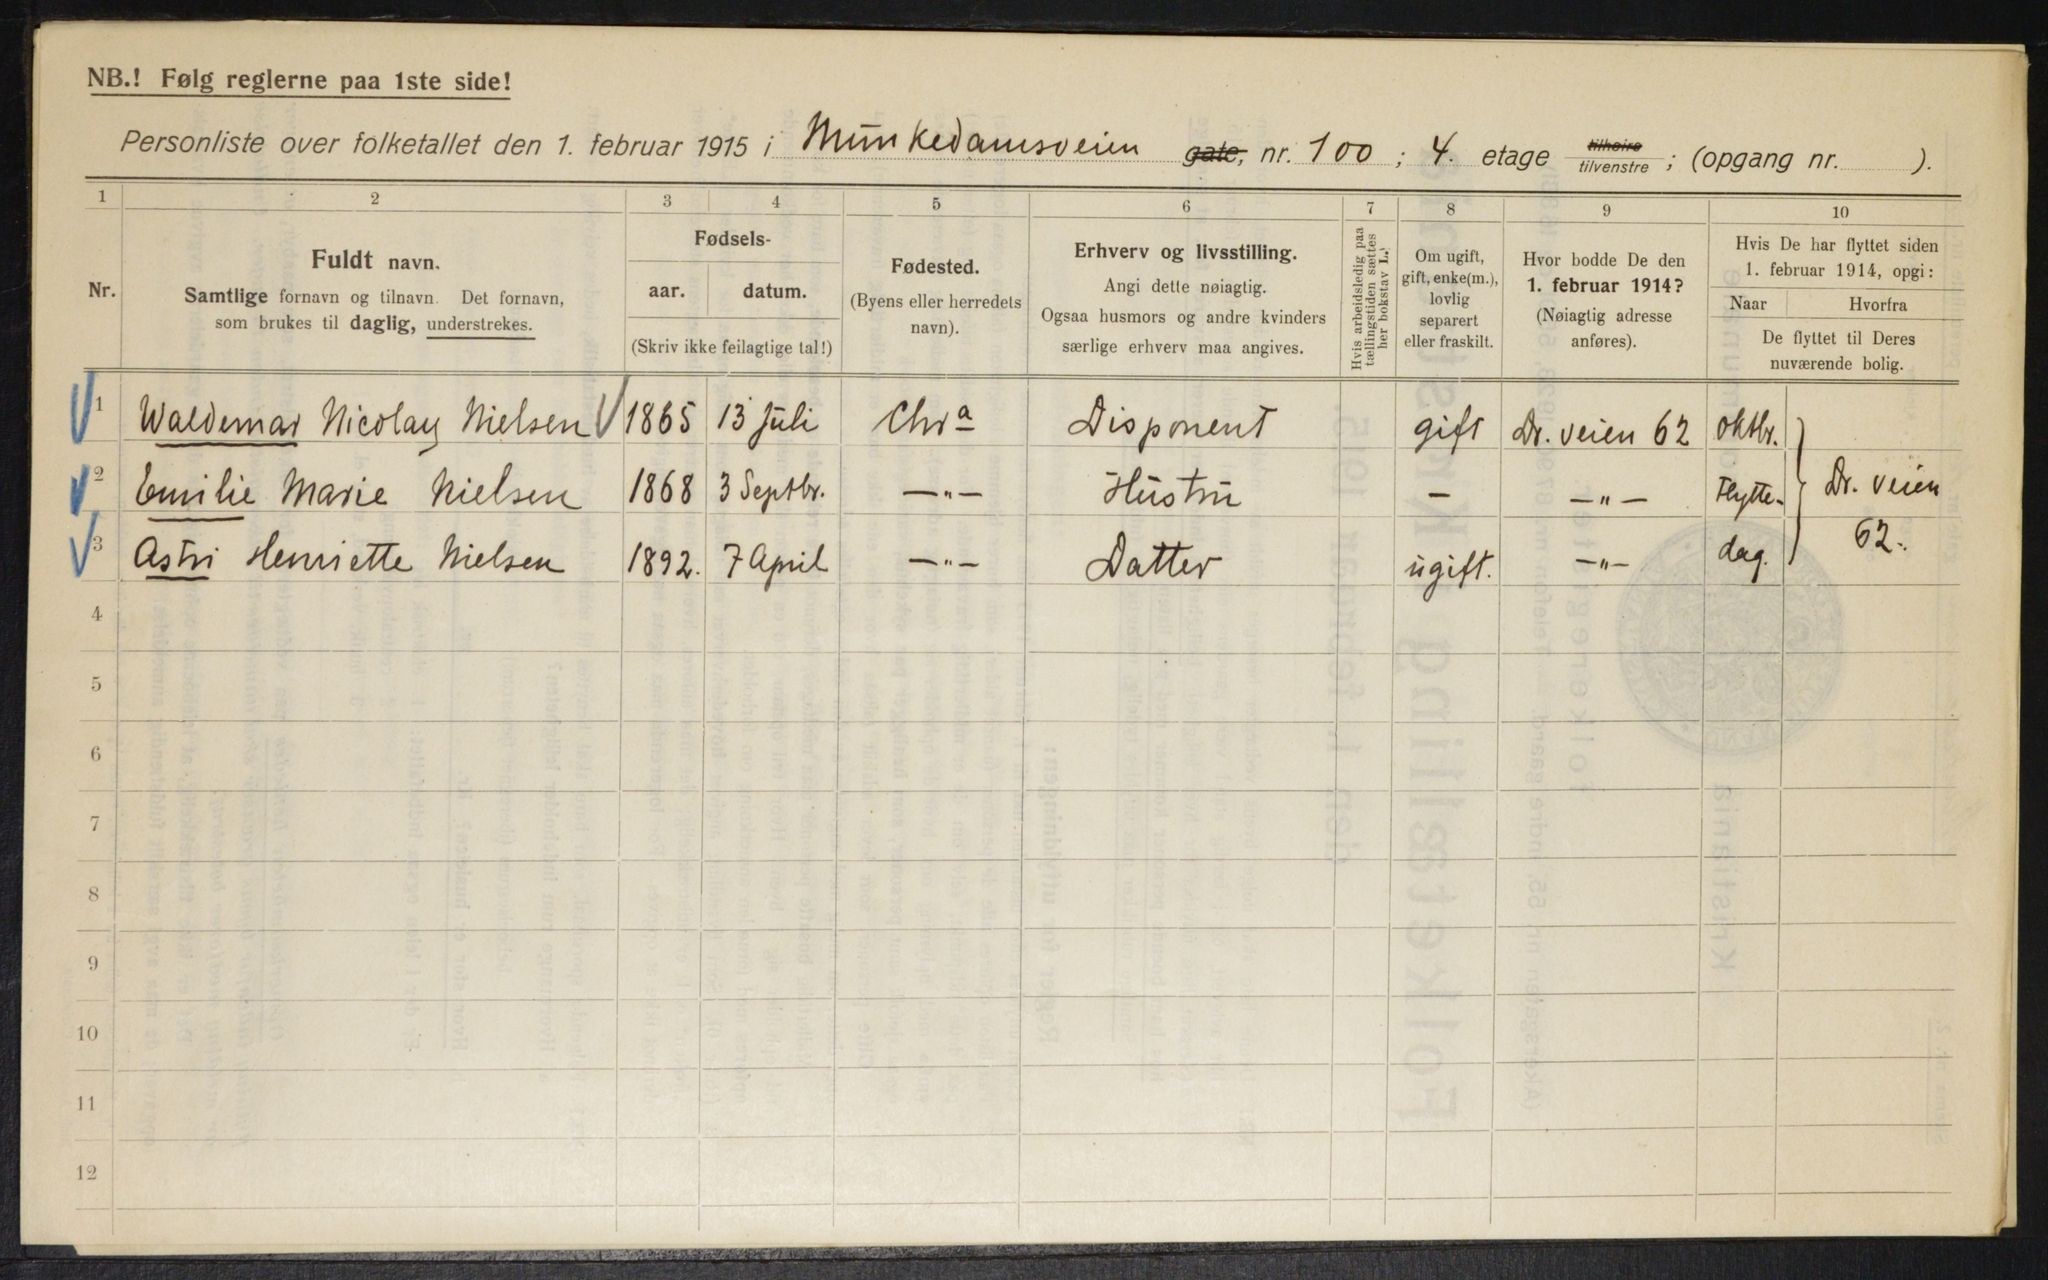 NB.! Følg reglerne paa 1ste side!
Personliste over folketallet den 1. februar 1915 i Munkedamsveien gate, nr. 100; 4. etage tilhøire tilvenstre; (opgang nr. ).
1 2 3 4 5 6 7 8 9 10
Nr.
Fuldt navn.
Samtlige fornavn og tilnavn. Det fornavn,
som brukes til daglig, understrekes.
Fødsels-
aar. datum.
(Skriv ikke feilagtige tal!)
Fødested.
(Byens eller herredets
navn).
Erhverv og livsstilling.
Angi dette nøiagtig.
Ogsaa husmors og andre kvinders
særlige erhverv maa angives.
Hvis arbeidsledig paa
tællingstiden sættes
her bokstav L.
Om ugift,
gift, enke(m.),
lovlig
separert
eller fraskilt.
Hvor bodde De den
1. februar 1914?
(Nøiagtig adresse
anføres).
Hvis De har flyttet siden
1. februar 1914, opgi:
Naar Hvorfra
De flyttet til Deres
nuværende bolig.
1 Waldemar Nicolay Nielsen 1865 13 Juli Chra Disponent gift Dr. veien 62 oktbr.
2 Emilie Marie Nielsen 1868 3 Septbr. —„— Hustru — —„— Flytte- Dr. veien
3 Astri Henriette Nielsen 1892. 7 April —„— Datter ugift. —„— dag. 62.
4
5
6
7
8
9
10
11
12